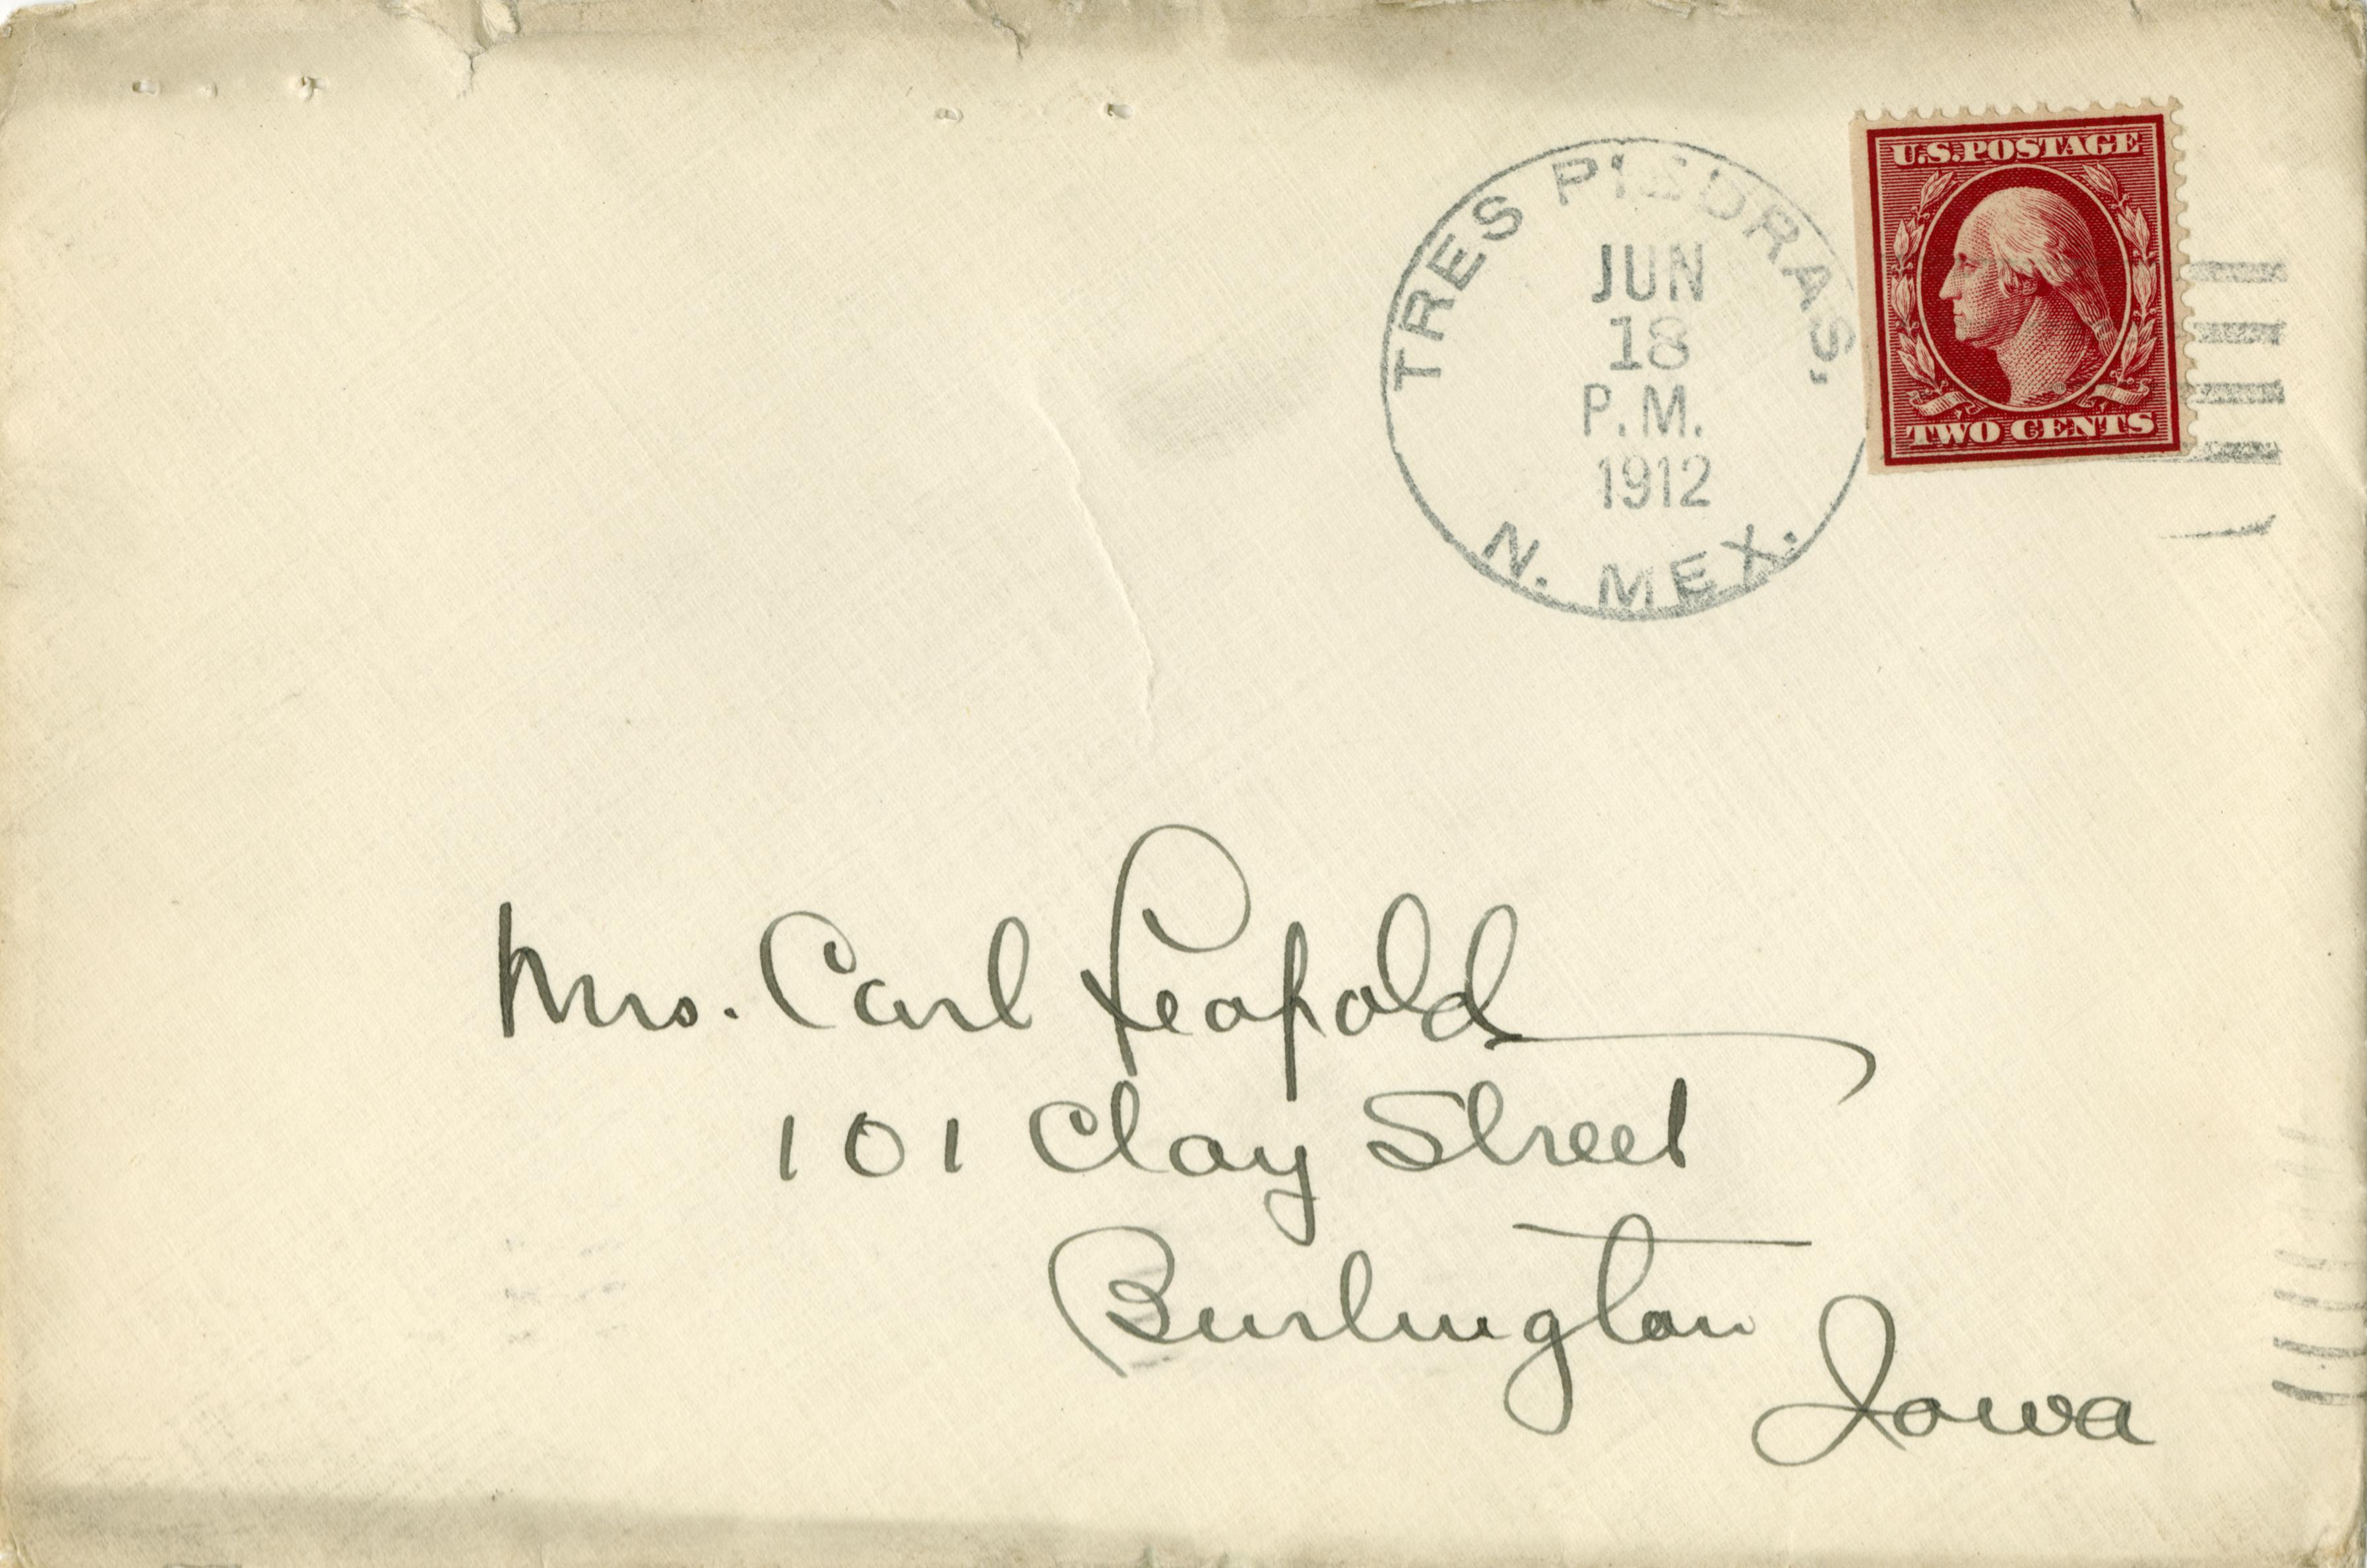 TRES PIEDRAS,
JUN
18
P.M.
1912
N. MEX.
U.S. POSTAGE
TWO CENTS
Mrs. Carl Leopold
101 Clay Street
Burlington
Iowa